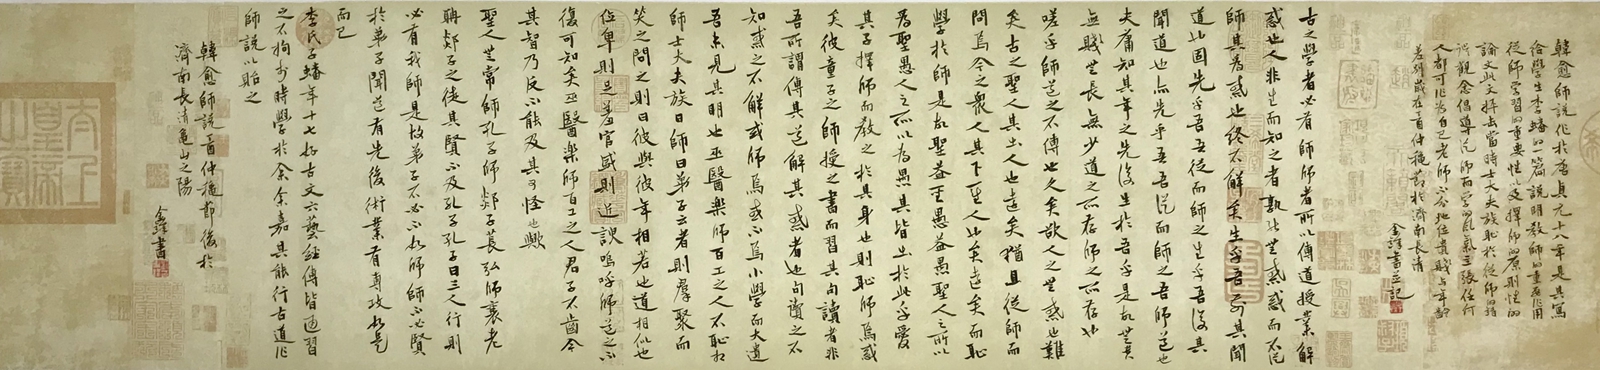 韓愈師說作於唐貞元十八年是其寫
給學生李蟠的一篇說明教師的重要作用
從師學習的重要性以及擇師的原則性的
論文此文抨击當時士大夫族恥於從師的錯
誤觀念倡導從師而學的風氣主張任何
人都可作為自己老師不分地位貴賤與年齡
差別歲在首仲穐節於濟南長清
書並記
古之學者必有師師者所以傳道授業解
惑也人非生而知之者孰能無惑惑而不從
師其為惑也終不解矣生乎吾前其聞
道也固先乎吾吾從而師之生乎吾後其
聞道也亦先乎吾吾從而師之吾師道也
夫庸知其年之先後生於吾乎是故無貴
無賤無長無少道之所存師之所存也
嗟乎師道之不傳也久矣欲人之無惑也難
矣古之聖人其出人也遠矣猶且從師而
問焉今之衆人其下聖人也遠矣而恥
學於師是故聖益聖愚益愚聖人之所以
為聖愚人之所以為愚其皆出於此乎愛
其子擇師而教之於其身也則恥師焉惑
矣彼童子之師授之書而習其句讀者非
吾所謂傳其道解其惑者也句讀之不
知惑之不解或師焉或不焉小學而大遺
吾未見其明也巫醫樂師百工之人不恥相
師士大夫族曰師曰弟子云者則羣聚而
笑之問之則曰彼與彼年相若也道相似也
位卑則足羞官盛則近諛嗚呼師道之不
復可知矣巫醫樂師百工之人君子不齒今
其智乃反不能及其可怪也歟
聖人無常師孔子師郯子萇弘師襄老
聃郯子之徒其賢不及孔子孔子曰三人行則
必有我師是故弟子不必不如師師不必賢
於弟子聞道有先後術業有專攻如是
而已
李氏子蟠年十七好古文六藝經傳皆通習
之不拘於時學於余余嘉其能行古道作
師說以貽之
韓愈師說首仲穐節後於
濟南長清龜山之陽
書
太上皇帝之寶